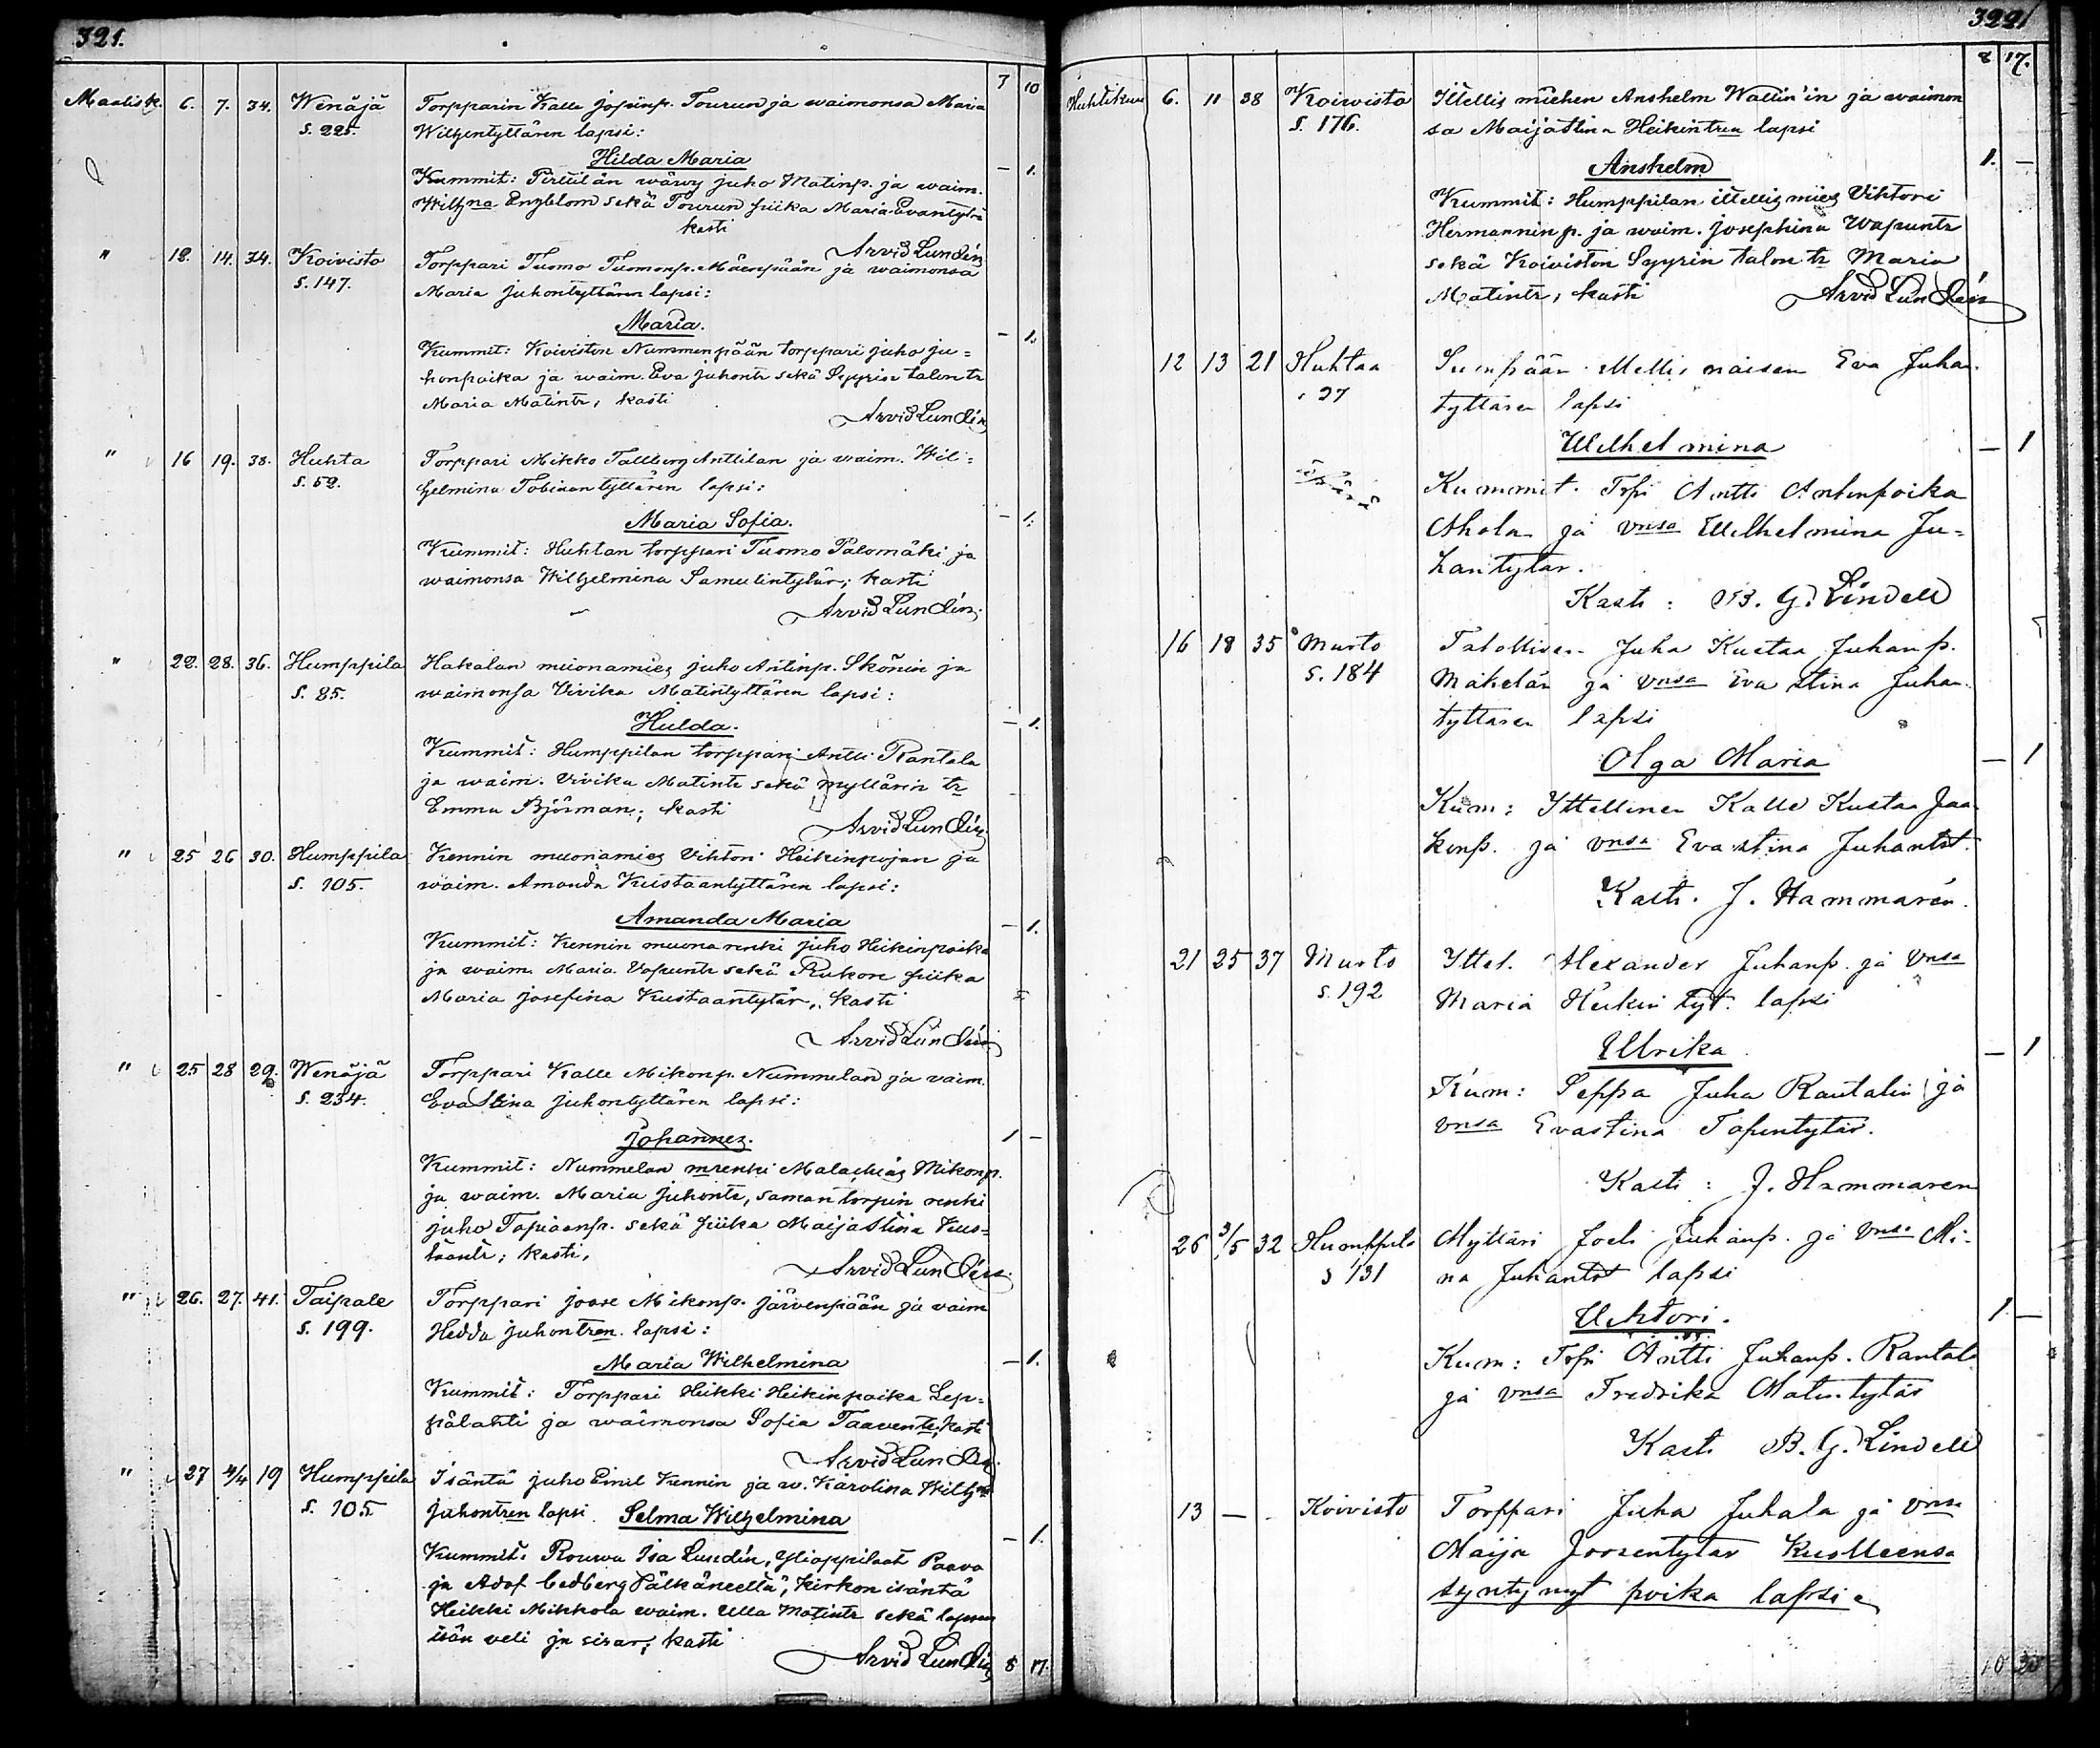 321.
7 10
Maalisk. 6. 7. 34. Wenäjä Torpparin Kalle Josinp. Tourun ja waimonsa Maria
s. 225. Wilhentyttären lapsi:
Hilda Maria — 1.
Kummit: Pirtilän wäwy Juho Matinp. ja waim.
Wilhna Engblom sekä Tourun piika Maria Evantytär
kasti
Arvid Lundén
" 12. 14. 34. Koivisto Torppari Tuomo Tuomonp. Mäenpään ja waimonsa
s. 147. Maria Juhontyttären lapsi:
Maria. — 1.
Kummit: Koiviston Nummenpään torppari Juho Ju=
honpoika ja waim. Eva Juhontr sekä Syyrin talon tr
Maria Matintr, kasti
Arvid Lundén
" 16 19. 38. Huhta Torppari Mikko Tallberg Anttilan ja waim. Wil=
s. 52. helmina Tobiaantyttären lapsi:
Maria Sofia. — 1.
Kummit: Huhtan torppari Tuomo Palomäki ja
waimonsa Wilhelmina Samulintytär; kasti
Arvid Lundén.
" 22. 28. 36. Humppila Hakalan muonamies Juho Antinp. Skönin ja
s. 85. waimonsa Vivika Matintyttären lapsi:
Hulda. — 1.
Kummit: Humppilan torppari Antti Rantala
ja waim. Vivika Matintr sekä myllärin tr
Emma Björman; kasti
Arvid Lundén
" 25 26 30. Humppila Kennin muonamies Vihtori Heikinpojan ja
s. 105. waim. Amanda Kustaantyttären lapsi:
Amanda Maria — 1.
Kummit: Kennin muona renki Juho Heikinpoika
ja waim. Maria Vapuntr sekä Rukon piika
Maria Josefina Kustaantytär, kasti
Arvid Lundén
" 25 28 29. Wenäjä Torppari Kalle Mikonp. Nummelan ja vaim.
s. 234. Eva Stina Juhontyttären lapsi:
Johannes. 1 —
Kummit: Nummelan mrenki Malachias Mikonp.
ja waim. Maria Juhontr, saman torpin renki
Juho Tapiaanp. sekä piika Maija Stina Kus=
taantr; kasti,
Arvid Lundén
" 26. 27. 41. Taipale Torppari Joose Mikonp. Järvenpään ja vaim
s. 199. Hedda Juhontren lapsi:
Maria Wilhelmina — 1.
Kummit: Torppari Heikki Heikinpoika Lep=
pälahti ja waimonsa Sofia Taaventr, kasti
Arvid Lundén
" 27 4/4 19 Humppila Isäntä Juho Emil Kennin ja w. Karolina Wilhna
s. 105. Juhontren lapsi. Selma Wilhelmina — 1.
Kummit: Rouwa Isa Lundén, Ylioppilaat Paavo
ja Adof Cedberg Pälkäneellä, Kirkon isäntä
Heikki Mikkola waim. Ulla Matintr sekä lapsen
isän veli ja sisar; kasti
Arvid Lundén 8 17.
322
8 17.
Huhtikuu 6. 11 38 Koivisto Itellis miehen Anshelm Wallin'in ja waimon
s. 176. sa Maijastina Heikintren lapsi
Anshelm 1. —
Kummit: Humppilan itellis mies Vihtori
Hermannin p. ja waim. Josephina Wapuntr
sekä Koiviston Syyrin talon tr Maria
Matintr, kasti Arvid Lundén
12 13 21 Huhtaa Eva Juhan
27 tyttären lapsi
Wilhelmina — 1
Kummit. Trpi Antti Antinpoika
Ahola ja vnsa Wilhelmina Ju=
hantytär.
Kasti: B. G. Lindell
16 18 35 Murto Talollisen Juha Kustaa Juhanp.
s. 184 Mäkelän ja vnsa Eva Stina Juhan
tyttären lapsi
Olga Maria — 1
Kum: Ittellinen Kalle Kustaa Jaa
konp. ja vnsa Eva Stina Juhantr.
Kasti. J. Hammarén.
21 25 37 Murto Ittel. Alexander Juhanp. ja vnsa
s. 192 Maria Heikin tyt. lapsi
Ulrika — 1
Kum: Seppa Juha Rautalin ja
vnsa Evastina Topintytär.
Kasti: J. Hammaren
26 3/5 32 Humppila Myllari Joeli Juhanp. ja vnsa Mi-
s 131 na Juhantyt lapsi
Wihtori. 1. —
Kum: Trpi Antti Juhanp. Rantala
ja vnsa Fredrika Matintytär
Kasti B. G. Lindell
13 — - Koivisto Torppari Juha Juhala ja vnsa
Maija Joosentytar Kuolleensa
syntynyt poika lapsi
10 20